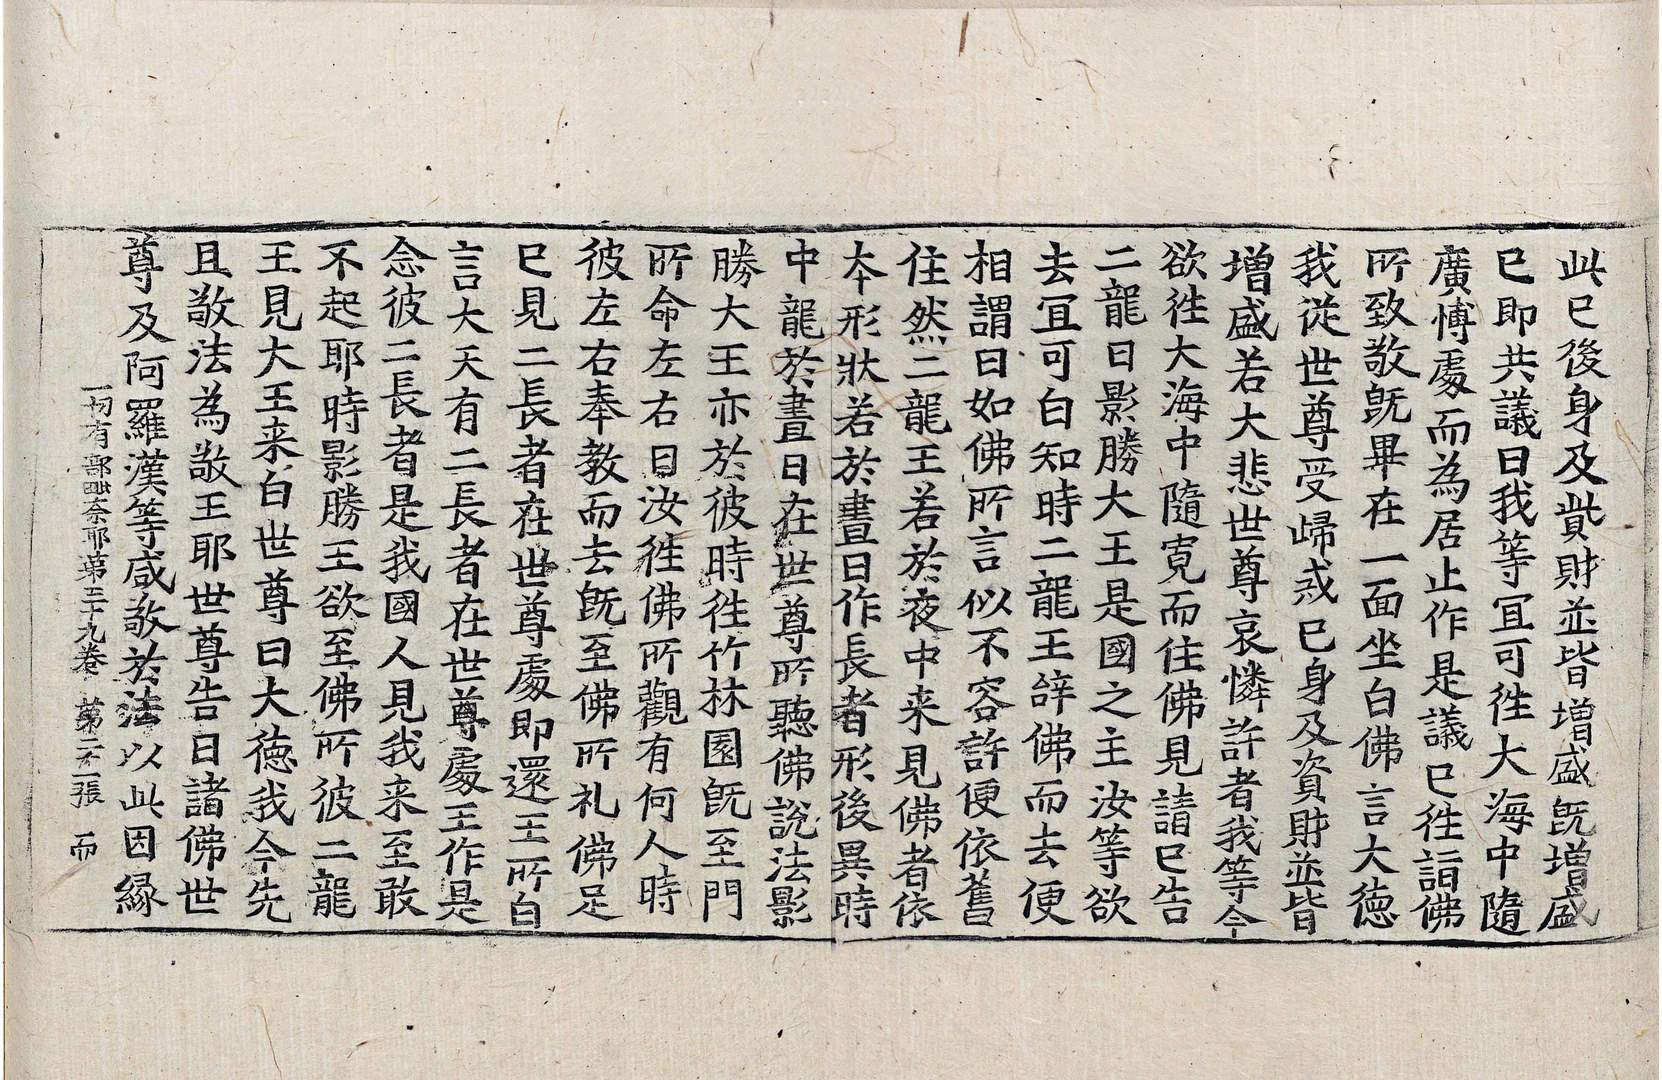 此已後身及貲財並皆增盛既增盛
已即共議曰我等宜可徃大海中隨
廣博處而為居止作是議已徃詣佛
所致敬既畢在一面坐白佛言大德
我從世尊受歸戒已身及資財並皆
增盛若大悲世尊哀憐許者我等今
欲徃大海中隨寛而住佛見請已告
二龍曰影勝大王是國之主汝等欲
去宜可白知時二龍王辝佛而去便
相謂曰如佛所言似不容許便依舊
住然二龍王若於夜中来見佛者依
夲形狀若於晝日作長者形後異時
中龍於晝日在世尊所聽佛說法影
勝大王亦於彼時徃竹林園既至門
所命左右曰汝徃佛所觀有何人時
彼左右奉教而去既至佛所礼佛足
已見二長者在世尊處即還王所白
言大天有二長者在世尊處王作是
念彼二長者是我國人見我来至敢
不起耶時影勝王欲至佛所彼二龍
王見大王来白世尊曰大德我今先
且敬法為敬王耶世尊告曰諸佛世
尊及阿羅漢等咸敬於法以此因緣
一切有部毗奈耶第三十九卷 第二十一張 而